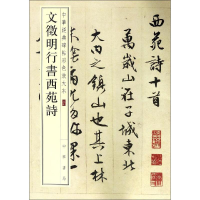 中華經典碑帖彩色放大本
文徵明行書西苑詩
西苑詩十首
萬歲山在子城東北
大内之鎮山也其上林
木陰翳尤多珍果一
中華書局